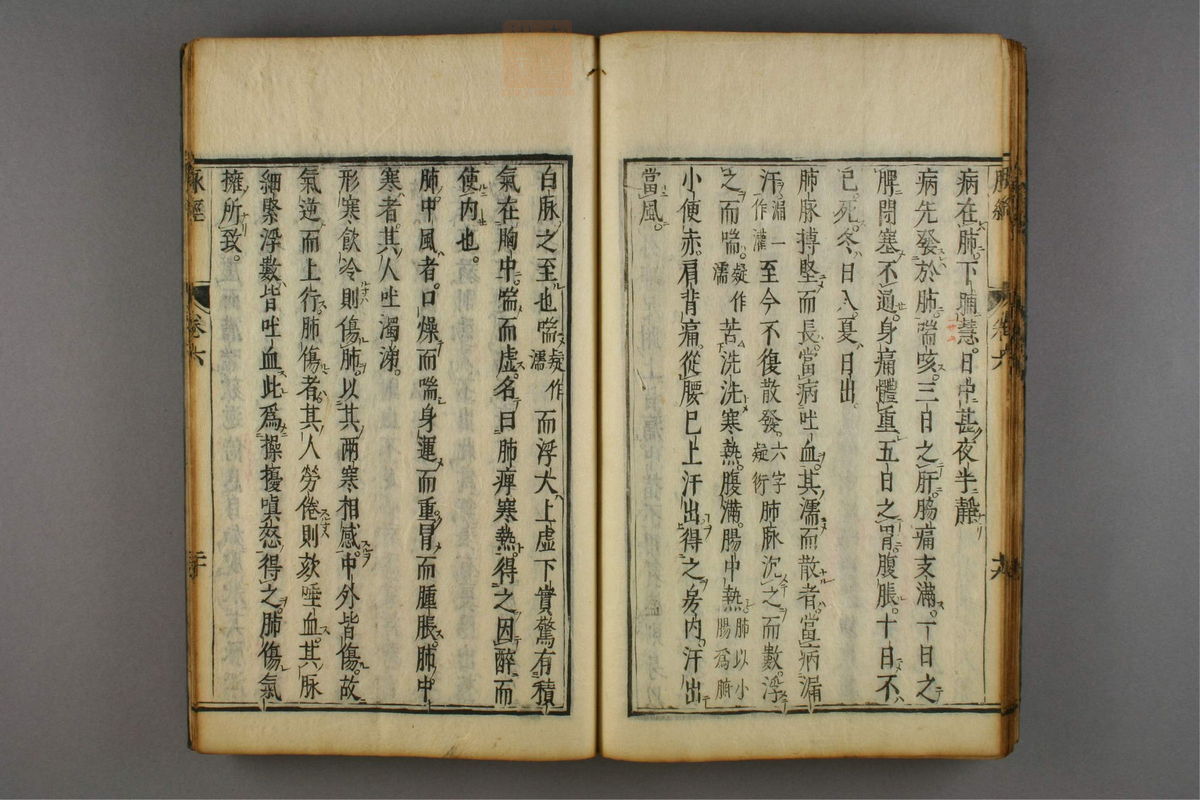 病在肺。下晡慧。日中甚。夜半靜。
病先發於肺。喘咳。三日之肝。脇痛支滿。一日之
脾。閉塞不通。身痛體重。五日之胃。腹脹。十日不
已。死。冬日入。夏日出。
肺脉搏堅而長。當病吐血。其濡而散者。當病漏
汗。漏一作灌至今不復散發。六字疑衍肺脉沉之而數。浮
之而喘。疑作濡苦洗洗寒熱。腹滿。腸中熱。肺以小腸爲腑
小便赤。肩背痛。從腰已上汗出。得之房内。汗出
當風。
白脉之至也喘疑作濡而浮大。上虛下實。驚有積
氣在胸中。喘而虛。名曰肺痺寒熱。得之因醉而
使内也。
肺中風者。口燥而喘。身運而重。冒而腫脹。肺中
寒者。其人吐濁涕。
形寒飲冷則傷肺。以其兩寒相感。中外皆傷。故
氣逆而上行。肺傷者。其人勞倦則欬唾血。其脉
細緊浮數。皆吐血。此爲操擾嗔怒得之。肺傷氣
擁所致。
脉經 卷六 二十